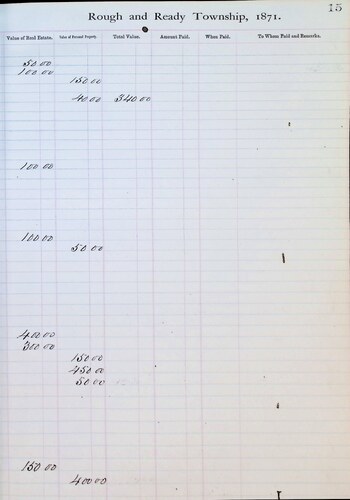 15
Rough and Ready Township, 1871.
Value of Real Estate. Value of Personal Property. Total Value. Amount Paid. When Paid. To Whom Paid and Remarks.
50.00
100.00
150.00
40.00 340.00
100.00
100.00
50.00
400.00
300.00
150.00
450.00
50.00
150.00
400.00